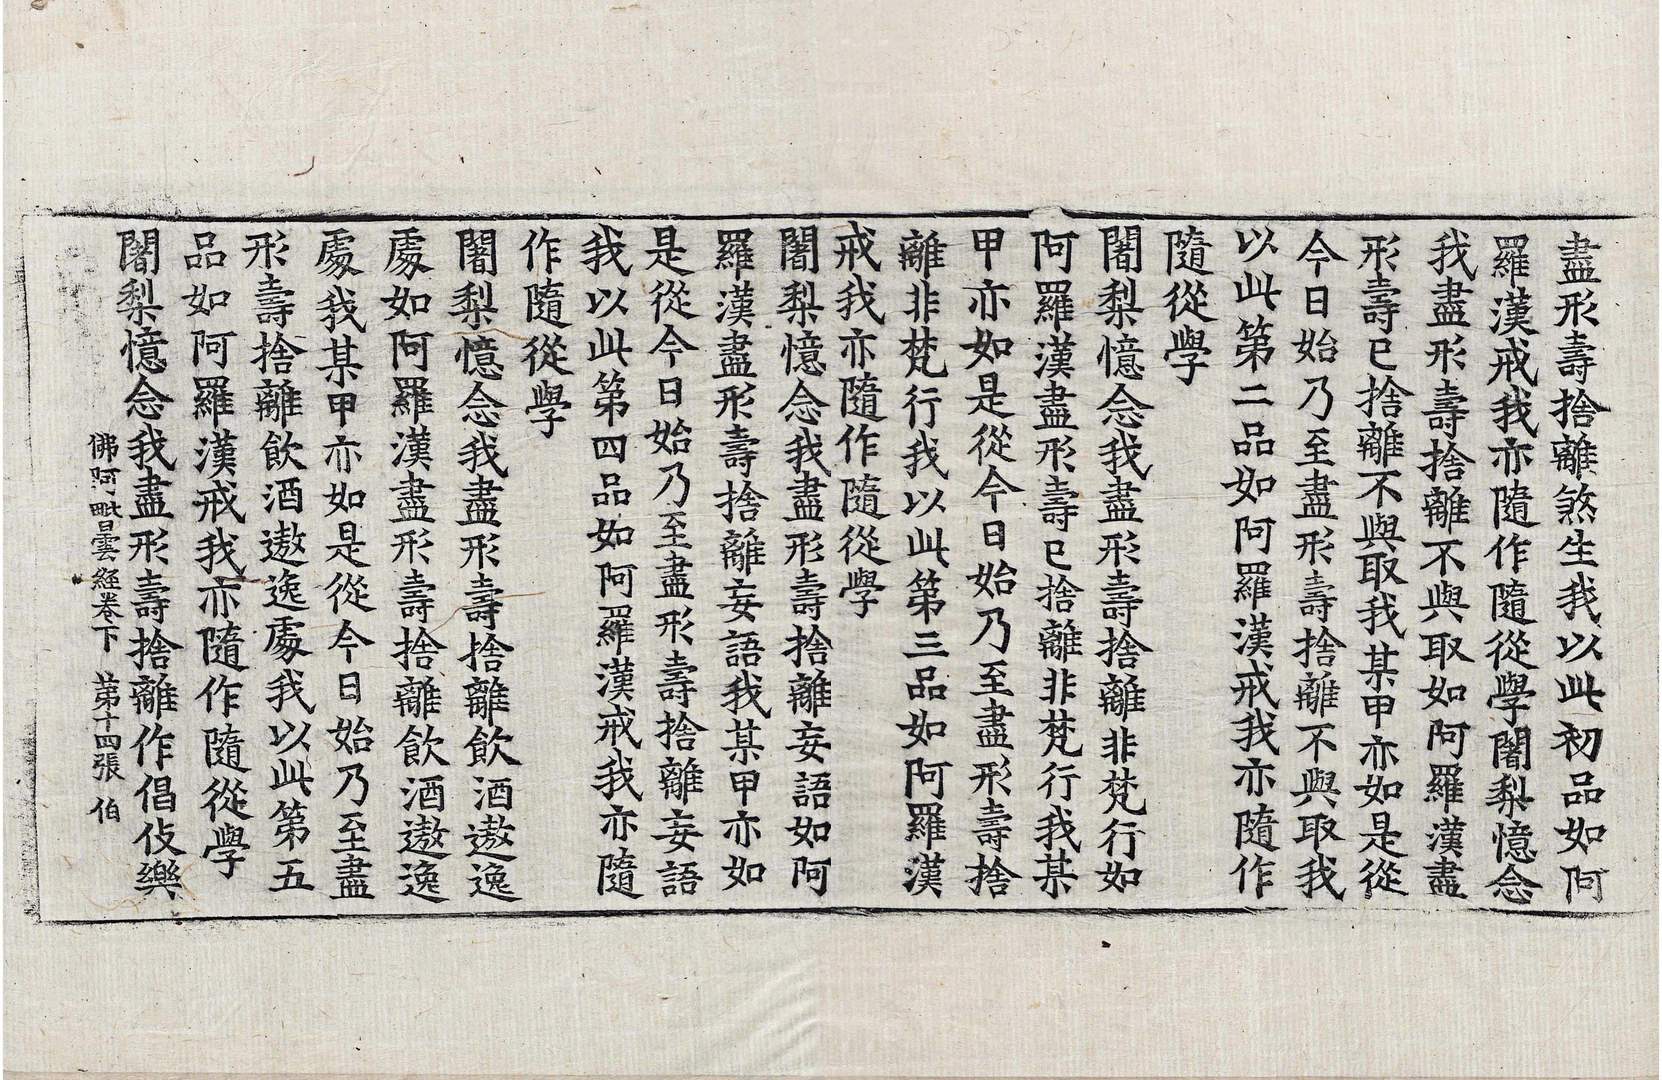 盡形壽捨離煞生我以此初品如阿
羅漢戒我亦隨作隨從學闍梨憶念
我盡形壽捨離不與取如阿羅漢盡
形壽已捨離不與取我某甲亦如是從
今日始乃至盡形壽捨離不與取我
以此第二品如阿羅漢戒我亦隨作
隨從學
闍梨憶念我盡形壽捨離非梵行如
阿羅漢盡形壽已捨離非梵行我某
甲亦如是從今日始乃至盡形壽捨
離非梵行我以此第三品如阿羅漢
戒我亦隨作隨從學
闍梨憶念我盡形壽捨離妄語如阿
羅漢盡形壽捨離妄語我某甲亦如
是從今日始乃至盡形壽捨離妄語
我以此第四品如阿羅漢戒我亦隨
作隨從學
闍梨憶念我盡形壽捨離飲酒遨逸
處如阿羅漢盡形壽捨離飲酒遨逸
處我某甲亦如是從今日始乃至盡
形壽捨離飲酒遨逸處我以此第五
品如阿羅漢戒我亦隨作隨從學
闍梨憶念我盡形壽捨離作倡伎樂
佛阿毗曇經卷下 第十四張 伯